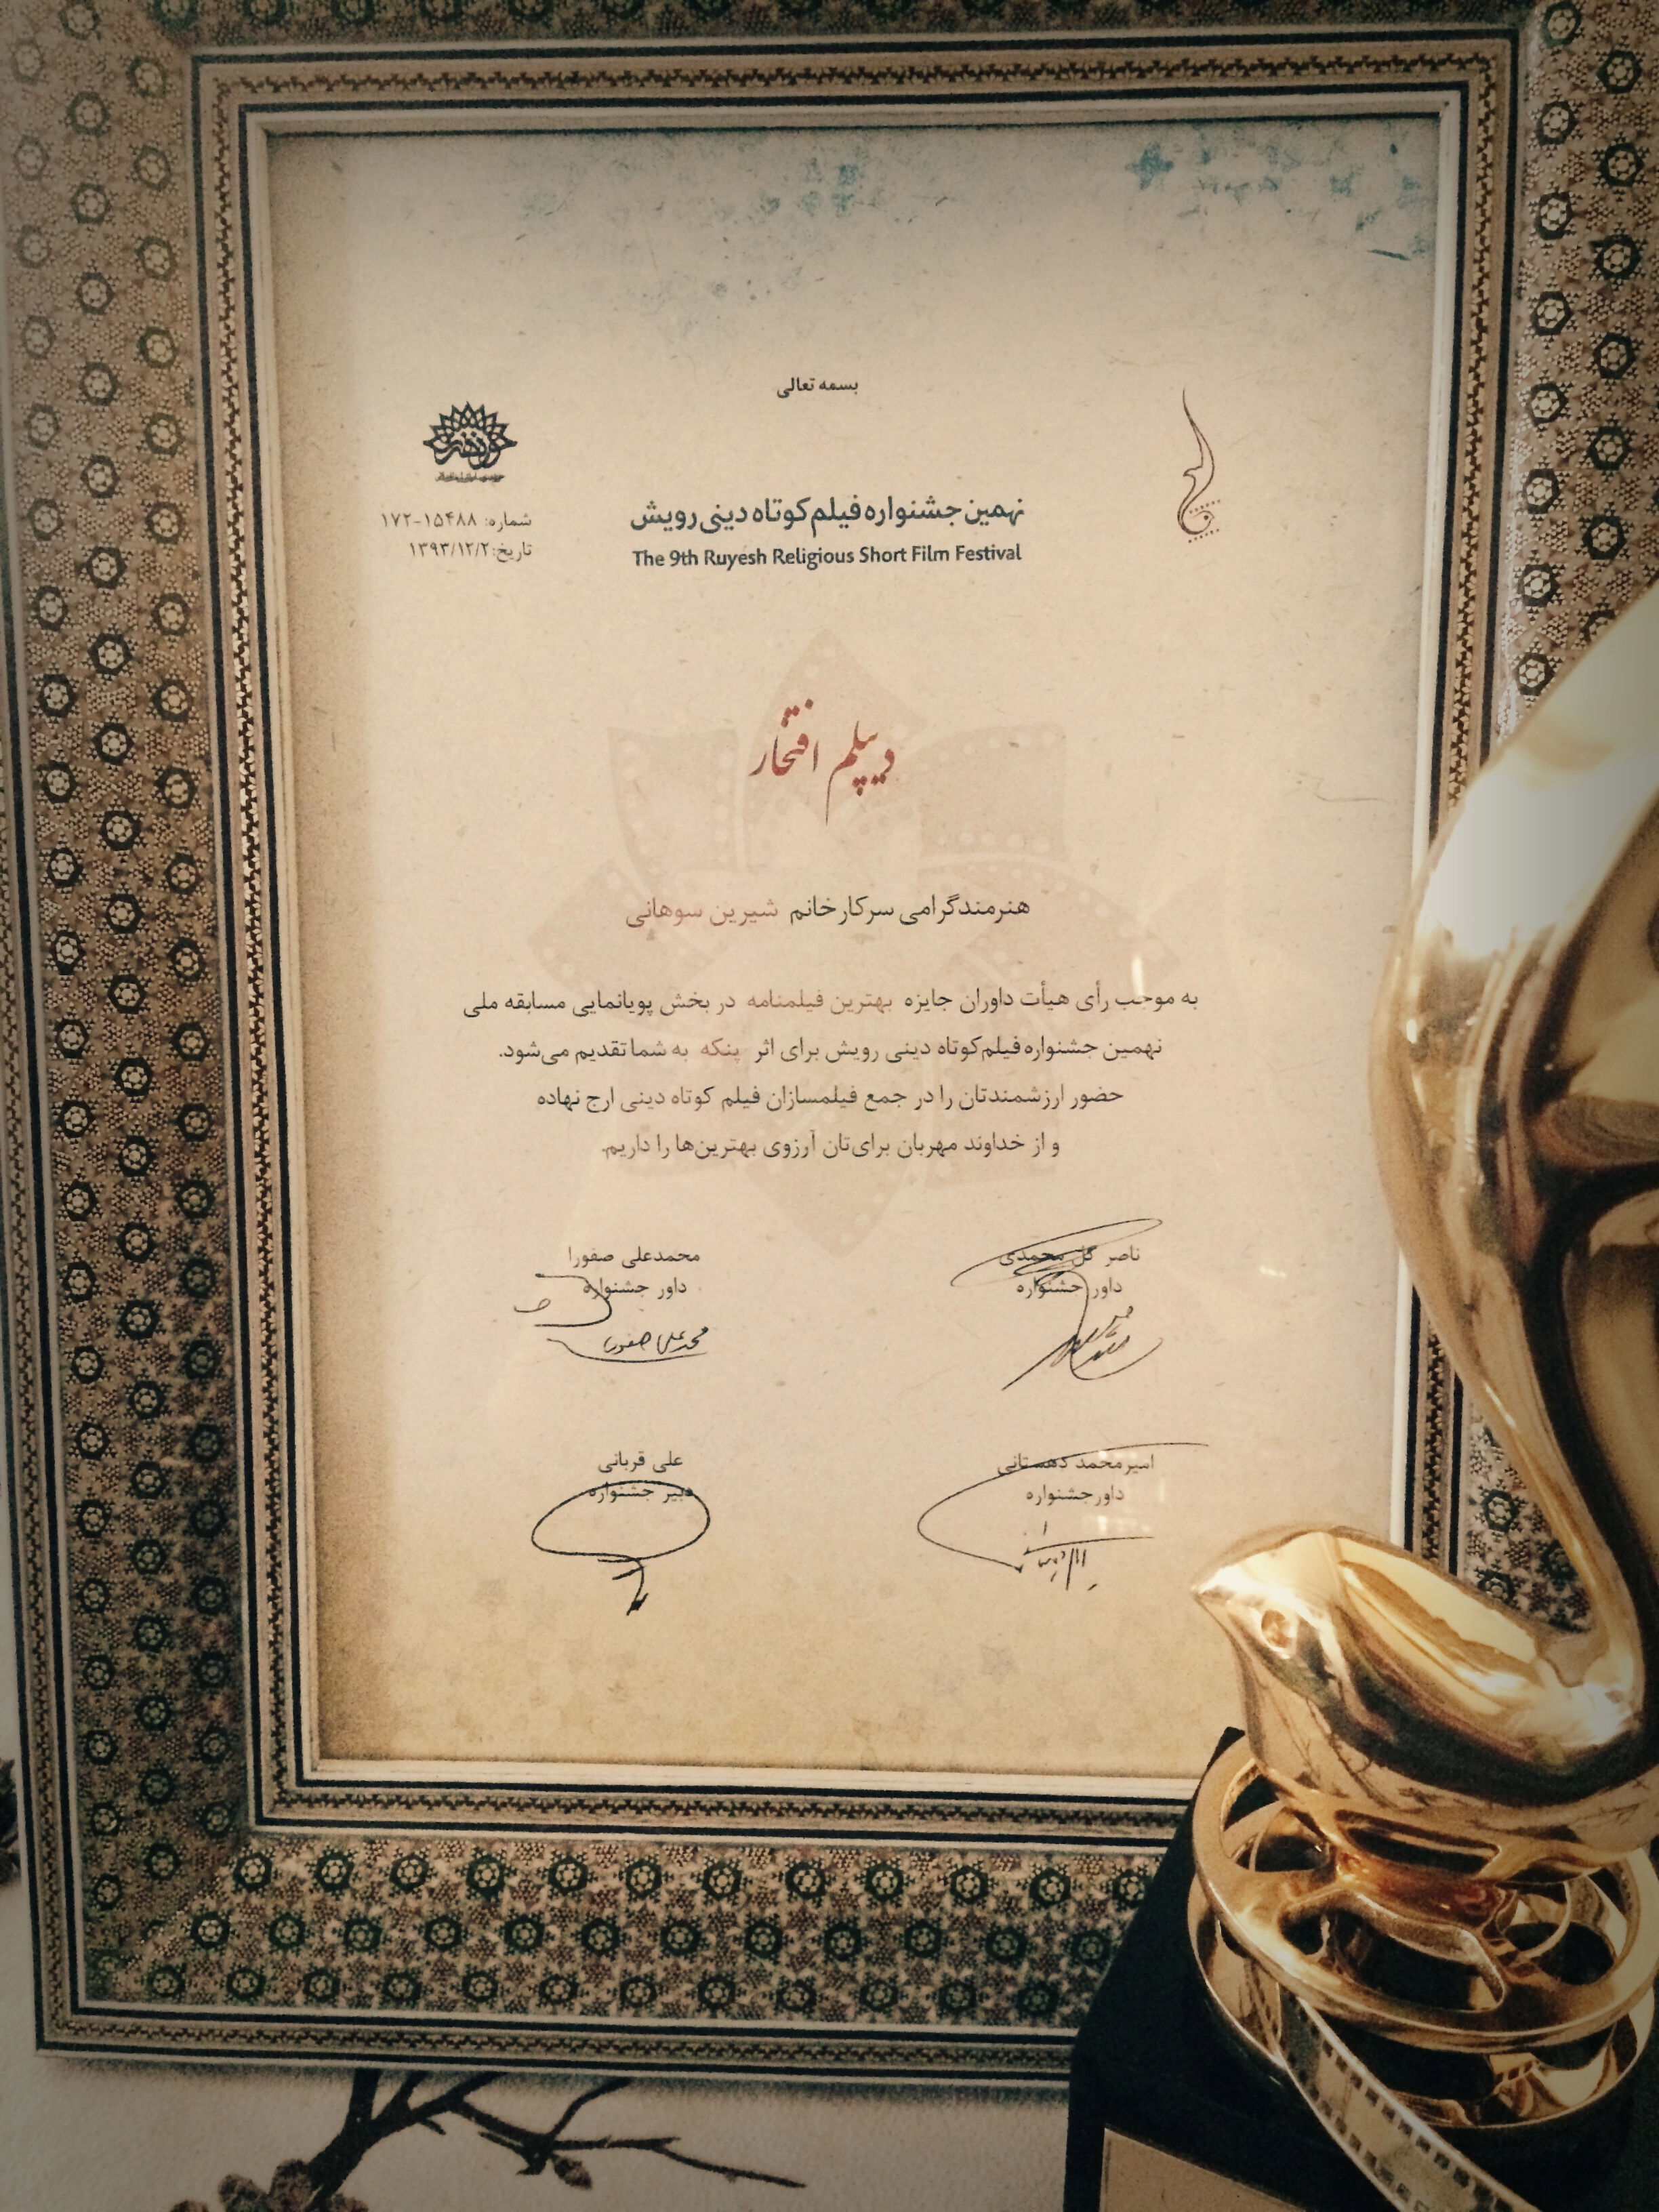 بسمه تعالی
شماره: ۱۵۴۸۸-۱۷۲
تاریخ: ۱۳۹۳/۱۲/۲
نهمین جشنواره فیلم کوتاه دینی رویش
The 9th Ruyesh Religious Short Film Festival
دیپلم افتخار
هنرمند گرامی سرکار خانم شیرین سوهانی
به موجب رأی هیأت داوران جایزه بهترین فیلمنامه در بخش پویانمایی مسابقه ملی
نهمین جشنواره فیلم کوتاه دینی رویش برای اثر پنکه به شما تقدیم می‌شود.
حضور ارزشمندتان را در جمع فیلمسازان فیلم کوتاه دینی ارج نهاده
و از خداوند مهربان برای‌تان آرزوی بهترین‌ها را داریم.
ناصر گل محمدی
داور جشنواره
محمدعلی صفورا
داور جشنواره
محمدعلی صفورا
امیرمحمد دهستانی
داور جشنواره
علی قربانی
دبیر جشنواره